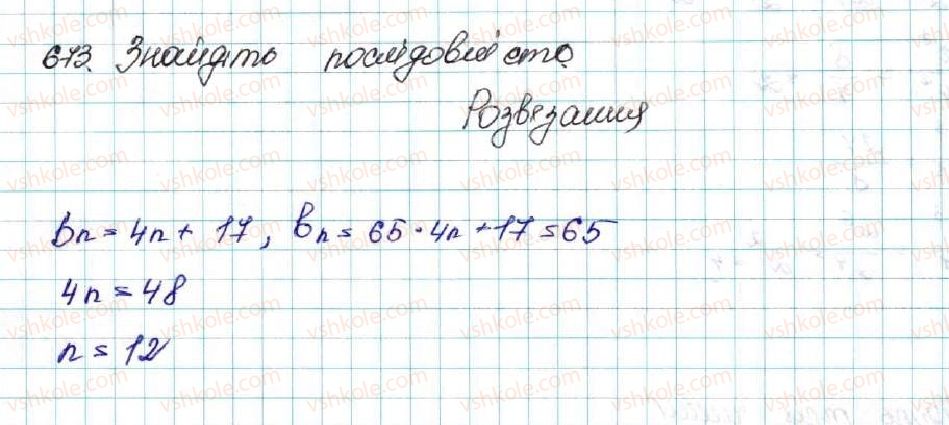 673. Знайдіть послідовність
Розвезання
bn = 4n + 17, bn = 65 · 4n + 17 = 65
4n = 48
n = 12